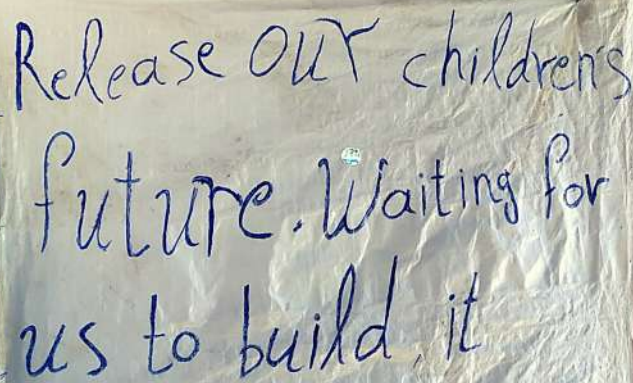 Release our children's
future. Waiting for
us to build it